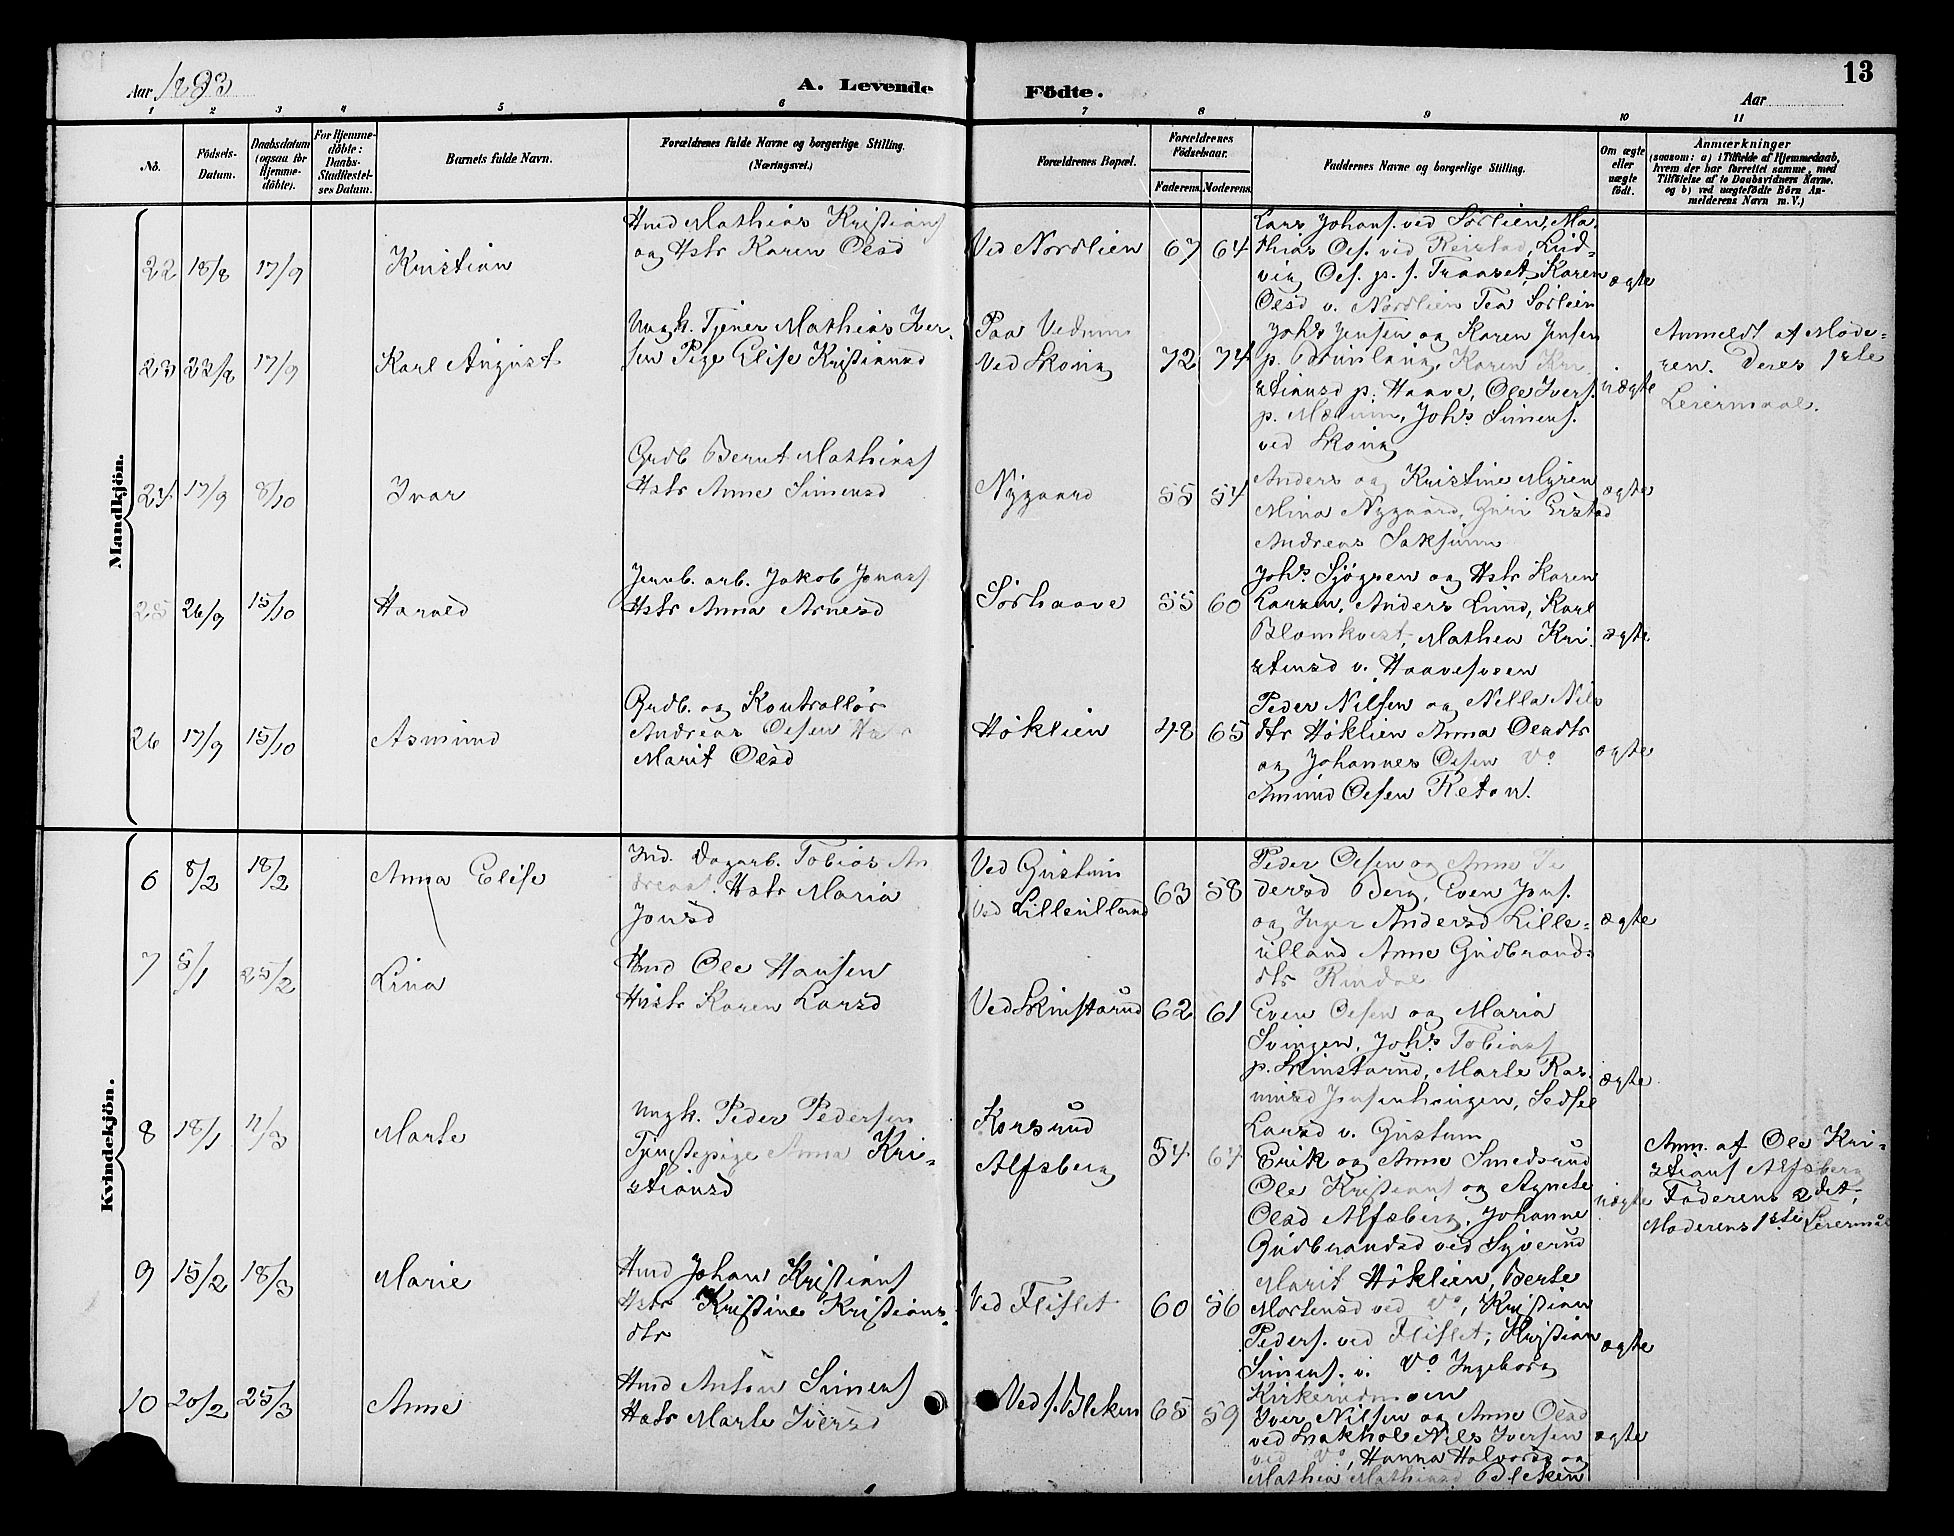 13
Aar 1893
A. Levende Födte.
Aar
1 2 3 4 5 6 7 8 9 10 11
No.
Födsels-Datum.
Daabsdatum (ogsaa for Hjemme-döbte).
For Hjemme-döbte: Daabs-Stadfæstel-ses Datum.
Barnets fulde Navn.
Forældrenes fulde Navne og borgerlige Stilling. (Næringsvei.)
Forældrenes Bopæl.
Forældrenes Födselsaar.
Faderens. Moderens.
Faddernes Navne og borgerlige Stilling.
Om ægte eller uægte födt.
Anmærkninger
(saasom: a) i Tilfælde af Hjemmedaab,
hvem der har forrettet samme, med
Tilföielse af to Daabsvidners Navne,
og b) ved uægtefödte Börn An-
melderens Navn m. V.)
Mandkjön.
22 18/8 17/9 Kristian
Hmd Mathias Kristians
og Hstr Karen Olsd
Ved Nordlien 67 64
Lars Johans. ved Sørlien, Ma-
thias Ols. ved Reistad, Lud-
vig Ols. p. s. Traaset, Karen
Olsd v. Nordlien Tea Sørlien
ægte
23 22/8 17/9 Karl August
Ungk. Tjener Mathias Iver-
sen Pige Elise Kristiansd
Paa Vedum
Ved Skoug 72 74
Johs Jensen og Karen Jensen
p. Brunlaug, Karen Kri-
stiansd p. Haave, Ole Ivers.
p. Mælum, Johs Simens.
ved Skoug
uægte
Anmeldt af Mode-
ren. Deres 1ste
Leiermaal.
24 17/9 8/10 Ivar
Grdb Bernt Mathias
Hstr Anne Simensd
Nygaard 55 54
Anders og Kristine Myren
Mina Nygaard, Guri Erstad
Andreas Saksum
ægte
25 26/9 15/10 Harald
Jernb. arb. Jakob Jonass
Hstr Anna Arnesd
Sørhaave 55 60
Johs Sjøgren og Hstr Karen
Larsen, Anders Lund, Karl
Blomkvist, Mathea Kri-
stensd v. Haavesveen
ægte
26 17/9 15/10 Asmund
Grdb. og Kontrollør
Andreas Olsen Hstr
Marit Olsd
Høklien 48 65
Peder Nilsen og Nilla Nils
dtr Høklien Anna Olsdtr
og Johannes Olsen Do
Amund Olsen Reton.
ægte
Kvindekjön.
6 8/2 18/2 Anna Elise
Ind. Dagarb. Tobias An
dreas. Hstr Maria
Jonsd
Ved Gustum
Ved Lilleulland 63 58
Peder Olsen og Anne Pe
dersd Berg, Even Jons.
og Inger Andersd Lille-
ulland Anne Gudbrands-
dtr Rindal
ægte
7 5/1 25/2 Lina
Hmd Ole Hansen
Hustr Karen Larsd
Ved Skinstarud 62 61
Even Olsen og Maria
Svingen, Johs Tobiass
p. Skinstarud, Marte Ras-
musd Jensenhaugen, Sedsel
Larsd v. Gustum
ægte
8 18/1 11/3 Marte
Ungk. Peder Pedersen
Tjenstepige Anna Kri-
stiansd
Korsrud
Alfsberg 54 64
Erik og Anne Smedsrud
Ole Kristians og Agnete
Olsd Alfsberg, Johanne
Gudbrandsd ved Syverud
uægte
Anm. af Ole Kri-
stians Alfsberg
Faderens 2det,
Moderens 1ste Leiermål
9 15/2 18/3 Marie
Hmd Johan Kristians
Hstr Kristine Kristians-
dtr
Ved Fliflet 60 56
Marit Høklien, Berte
Mortensd ved Do, Kristian
Peders. ved Fliflet, Kristian
Simens. v. Do Ingeborg
Kirkerudmoen
ægte
10 20/2 25/3 Anne
Hmd Anton Simens
Hstr Marte Iversd
Ved s. Bleken 65 59
Iver Nilsen og Anne Olsd
ved Lrakhol Nils Iversen
ved Do, Hanna Halvorsd og
Mathea Mathiasd Bleken
ægte